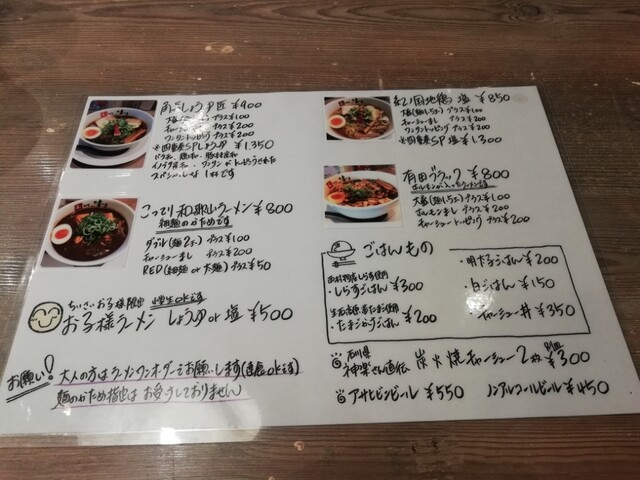 しょうゆ 匠 ¥900
大盛(麺1.5玉) プラス¥100
チャーシューまし プラス¥200
ワンタントッピング プラス¥200
SPしょうゆ ¥1.350
スペシャルな1杯です
こってり和歌山ラーメン ¥800
細麺のかためです
ダブル(麺2玉) プラス¥100
チャーシューまし プラス¥200
RED(細麺 or 太麺) プラス¥50
ちいさいお子様限定
お子様ラーメン しょうゆ or 塩 ¥500
お願い!
大人の方はラーメンワンオーダーでお願いします
麺のかため指定は お受けしておりません
紀ノ国地鶏 塩 ¥850
大盛(麺1.5玉) プラス¥100
チャーシューまし プラス¥200
ワンタントッピング プラス¥200
SP 塩 ¥1.300
有田ブラック ¥800
ホルモンが入ったラーメンです
大盛(麺1.5玉) プラス¥100
ホルモンまし プラス¥200
チャーシュートッピング プラス¥200
ごはんもの
しらす使用
・しらすごはん ¥300
使用
・たまごかけごはん ¥200
・明太子ごはん ¥200
・白ごはん ¥150
・チャーシュー丼 ¥350
石川県
神楽さん直伝 炭火焼チャーシュー2枚 ¥300
アサヒビンビール ¥550
ノンアルコールビール ¥450